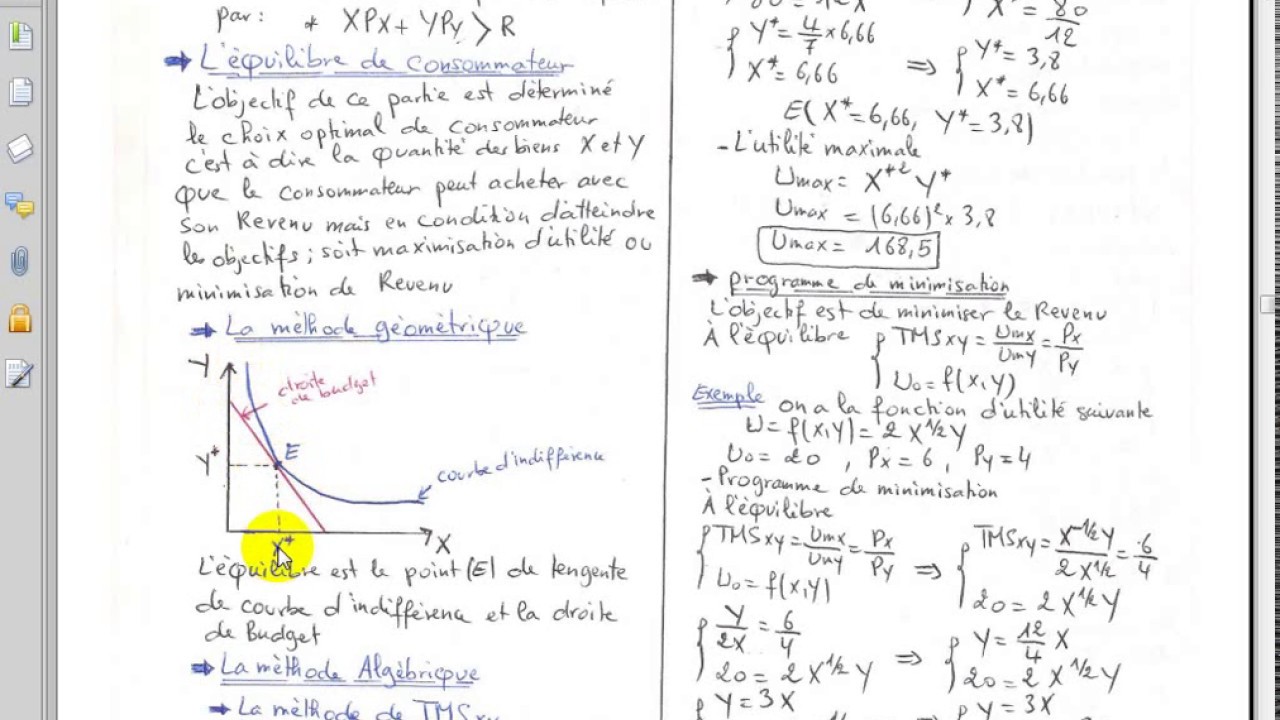 par: * XPx + YPy > R
➡ L'èquilibre de consommateur
L'objectif de ce partie est déterminé
le choix optimal de consommateur
c'est à dire la quantité des biens X et Y
que le consommateur peut acheter avec
son Revenu mais en condition d'atteindre
les objectifs; soit maximisation d'utilité ou
minimisation de Revenu
➡ La mèthode gèomètricque
Y
droite
de budget
E
Y*
courbe d'indifférence
X*
X
L'èquilibre est le point (E) de tengente
de courbe d'indifférence et la droite
de Budget
➡ La mèthode Algèbricque
➡ La mèthode de TMSxy
80
12
Y* = 4/7 x 6,66
X* = 6,66
=> Y* = 3,8
X* = 6,66
E( X* = 6,66, Y* = 3,8)
- L'utilité maximale
Umax = X*² Y*
Umax = (6,66)² x 3,8
Umax = 168,5
➡ programme de minimisation
L'objectif est de minimiser le Revenu
À l'èquilibre { TMSxy = Umx/Umy = Px/Py
U₀ = f(x,y)
Exemple on a la fonction d'utilité suivante
U = f(x,y) = 2 X^1/2 Y
U₀ = 20 , Px = 6 , Py = 4
- Programme de minimisation
À l'èquilibre
{ TMSxy = Umx/Umy = Px/Py => { TMSxy = X^-1/2 Y / 2 X^1/2 = 6/4
U₀ = f(x,y) 20 = 2 X^1/2 Y
{ Y/2X = 6/4 => { Y = 12/4 X
20 = 2 X^1/2 Y 20 = 2 X^1/2 Y
{ Y = 3X { Y = 3X